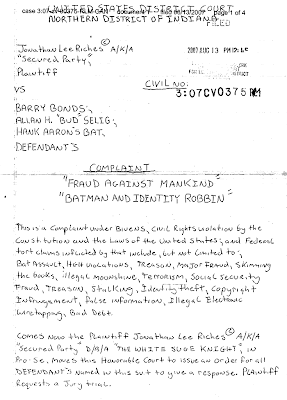 UNITED STATES DISTRICT COURT
NORTHERN DISTRICT OF INDIANA
FILED
Jonathan Lee Riches © A/K/A
"Secured Party",
Plaintiff
2007 AUG 13
VS
CIVIL NO:
3:07CV0375 RM
BARRY BONDS;
ALLAN H. "BUD" SELIG;
HANK AARON'S BAT,
DEFENDANT'S
COMPLAINT
"FRAUD AGAINST MANKIND"
"BATMAN AND IDENTITY ROBBIN"
This is a Complaint under BIVENS, Civil Rights violation by the
Constitution and the Laws of the United States; and Federal
tort claims inflicted by that include, but not limited to;
Bat Assault, violations, Treason, Major Fraud, Skimming
the books, illegal moonshine, Terrorism, Social Security
Fraud, Treason, Stalking, Identity theft, Copyright
Infringement, False information, Illegal Electronic
Wiretapping, Bad Debt.
Comes now the Plaintiff Jonathan Lee Riches © A/K/A
"Secured Party" D/B/A "THE WHITE SUGE KNIGHT", in
Pro-Se, moves this Honorable Court to issue an order for all
DEFENDANT'S named in this suit to give a response. PLAINTIFF
Requests a Jury trial.